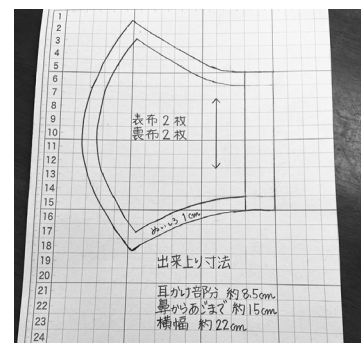 1
2
3
4
5
6
7
8
9
10
11
12
13
14
15
16
17
18
19
20
21
22
23
24
表布2枚
裏布2枚
ぬいしろ1cm
出来上り寸法
耳かけ部分 約8.5cm
鼻からあごまで 約15cm
横幅 約22cm